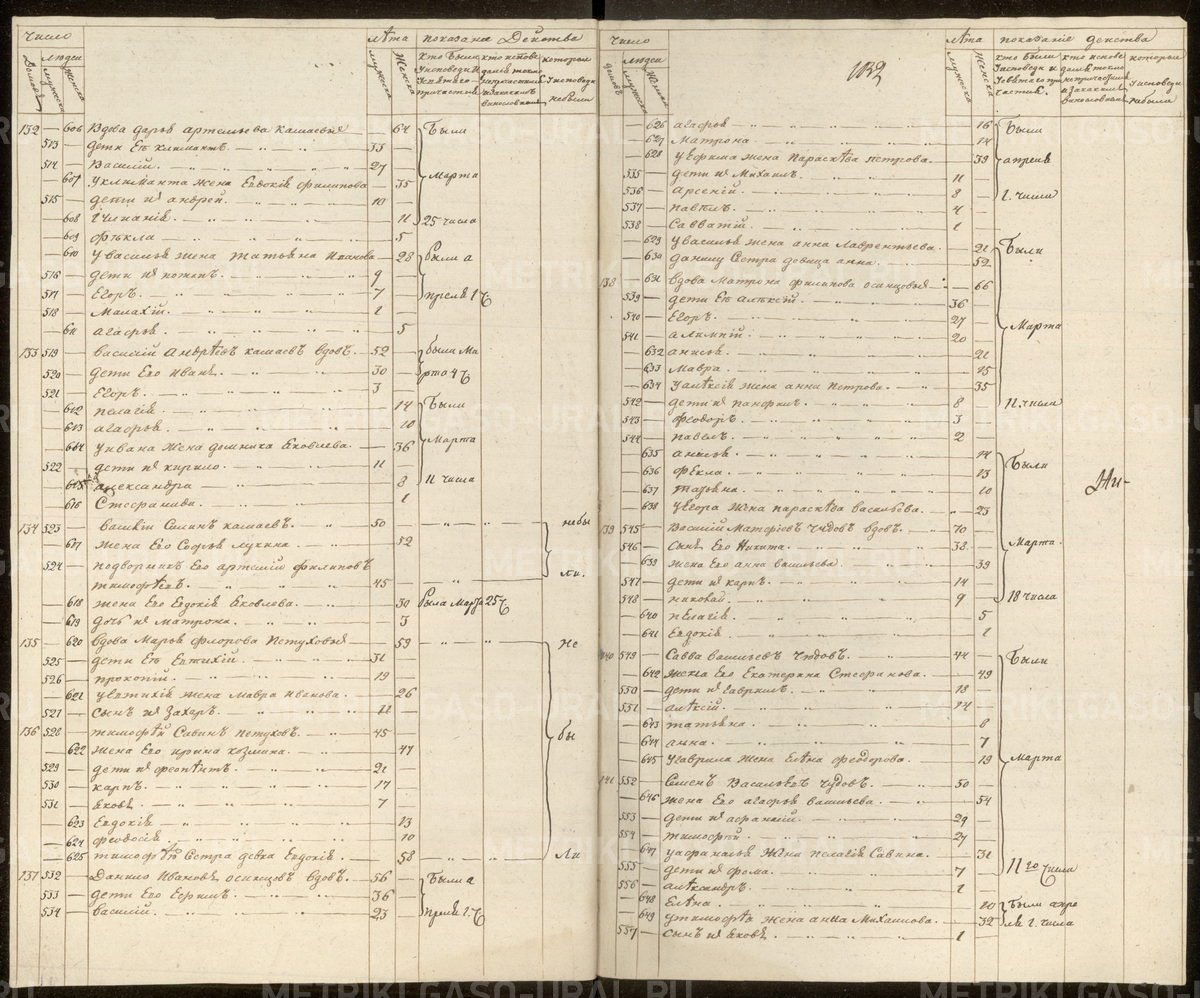 число лѣта показание действа
Домовъ людеи мужеска женска мужеска женска кто были Уисповеди и Усвятаго причастия кто исповедался токмо непричастился и за какимъ винословиемъ которыя Уисповеди небыли
132 — 606 вдова дарья артемьева камаевыя — 64 Были
513 — дети Ея климантъ — 33
514 — Василий — 27
607 Уклиманта жена Евдокия филипова — 35 Марта
515 — дети ихъ андрей — 10
608 — 11 25 числа
609 фекла — 5
610 Увасилья жена татьяна Иванова — 28 Были а
516 — дети ихъ — 9
517 — Егоръ — 7 преля 1 ч
518 — Малахий — 1
611 агафья — 5
133 519 — василий Андреевъ камаевъ вдовъ — 52 были Ма
520 — дети Его иванъ — 30 рта 4 ч
521 — Егоръ — 3
612 пелагия — 14 Были
613 агафья — 10
614 Уивана жена домника Яковлева — 36 Марта
522 — дети ихъ кирило — 11
615 александра — 8 11 числа
616 Стефанида — 1
134 523 — камаевъ — 50 небы
617 жена Его Софья лукина — 52
524 — подворникъ Его артемий филиповъ
тимофеевъ — 45 ли.
618 жена Его Евдокия Яковлева — 30 была Марта 25 ч
619 дочь их матрона — 3
135 — 620 вдова Марья флорова Петуховыя — 59 Не
525 — дети Ея Евтихий — 31
526 — прокопий — 19
621 Уевтихия жена мавра иванова — 26
527 — сынъ ихъ Захаръ — 11
136 528 — тимофей Савинъ петуховъ — 45 бы
622 жена Его ирина козмина — 47
529 — дети ихъ феоптентъ — 21
530 — карпъ — 17
531 — яковъ — 7
623 Евдокия — 13
624 феодосия — 10
625 тимофея Сестра девка Евдокия — 58 Ли
137 532 — Данило Ивановъ осинцовъ вдовъ — 56 Были а
533 — дети Его Ефимъ — 36
534 — василий — 23 преля 1 ч
число лѣта показание действа
домовъ людеи мужеска женска мужеска женска кто были Уисповеди и Усвятаго причастия кто исповедался токмо непричастился и за какимъ винословиемъ которыя Уисповеди небыли
132
626 агафья — 16 Были
627 Матрона — 14
628 Уефима жена Параскева петрова — 39 апреля
535 — дети ихъ Михаилъ — 11
536 — Арсений — 8 1. числа
537 — павелъ — 4
538 — Савватий — 1
629 Увасилья жена анна Лаврентьева — 21 Были
630 данилу Сестра девица анна — 52
138 — 631 вдова Матрона филипова осинцовыя — 66
539 — дети Ея алексей — 36
540 — Егоръ — 27 Марта
541 — алимпий — 20
632 анисья — 21
633 Мавра — 15
634 Уалексия жена анна петрова — 35
542 — дети ихъ панфилъ — 8 11. числа
543 — феодоръ — 3
544 — павелъ — 2
635 анисья — 14 Были
636 фекла — 13
637 татьяна — 10 Ми-
638 Уегора жена параскева васильева — 23
139 545 — Василий Матфеовъ Чудовъ вдовъ — 70
546 — Сынъ Его Никита — 38 Марта
639 жена Его анна васильева — 39
547 — дети ихъ карпъ — 14
548 — николай — 9 18 числа
640 пелагия — 5
641 Евдокия — 1
140 549 — Савва васильевъ Чюдовъ — 44 Были
642 жена Его Екатерина Стефанова — 49
550 — дети ихъ гаврилъ — 18
551 — алексий — 14
643 татьяна — 8
644 анна — 7
645 Угаврила жена Елена феодорова — 19 Марта
141 552 — Семенъ Васильевъ чудовъ — 50
646 жена Его агафья васильева — 54
553 — дети ихъ афанасий — 29
554 — тимофей — 27
647 Уафанасья жена пелагия Савина — 31
555 — дети их фома — 7 11го числа
556 — александръ — 1
648 Елена — 10 Были апре
649 Утимофея жена анна Михайлова — 32 ля 1. числа
557 — сынъ ихъ яковъ — 1
METRIKI.GASO-URAL.RU